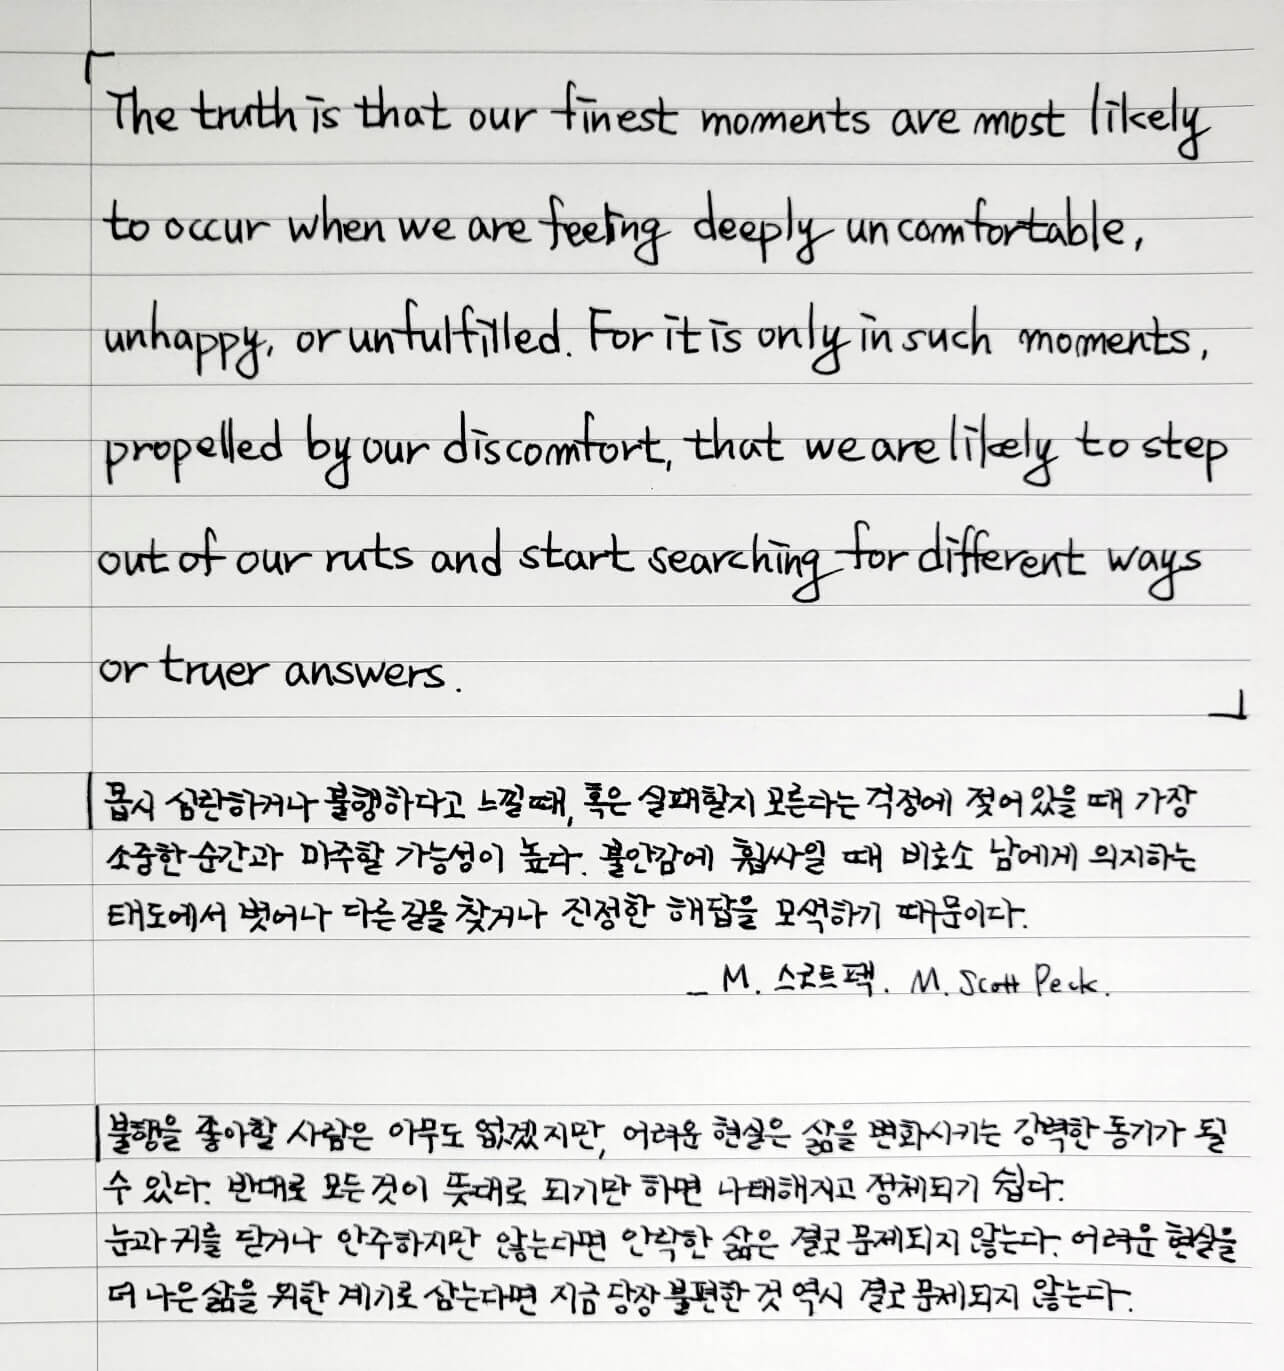 「The truth is that our finest moments are most likely
to occur when we are feeling deeply uncomfortable,
unhappy, or unfulfilled. For it is only in such moments,
propelled by our discomfort, that we are likely to step
out of our ruts and start searching for different ways
or truer answers.」
몹시 심란하거나 불행하다고 느낄 때, 혹은 실패할지 모른다는 걱정에 젖어 있을 때 가장
소중한 순간과 마주할 가능성이 높다. 불안감에 휩싸일 때 비로소 남에게 의지하는
태도에서 벗어나 다른 길을 찾거나 진정한 해답을 모색하기 때문이다.
_ M. 스코트 펙. M. Scott Peck.
불행을 좋아할 사람은 아무도 없겠지만, 어려운 현실은 삶을 변화시키는 강력한 동기가 될
수 있다. 반대로 모든 것이 뜻대로 되기만 하면 나태해지고 정체되기 쉽다.
눈과 귀를 닫거나 안주하지만 않는다면 안락한 삶은 결코 문제되지 않는다. 어려운 현실을
더 나은 삶을 위한 계기로 삼는다면 지금 당장 불편한 것 역시 결코 문제되지 않는다.